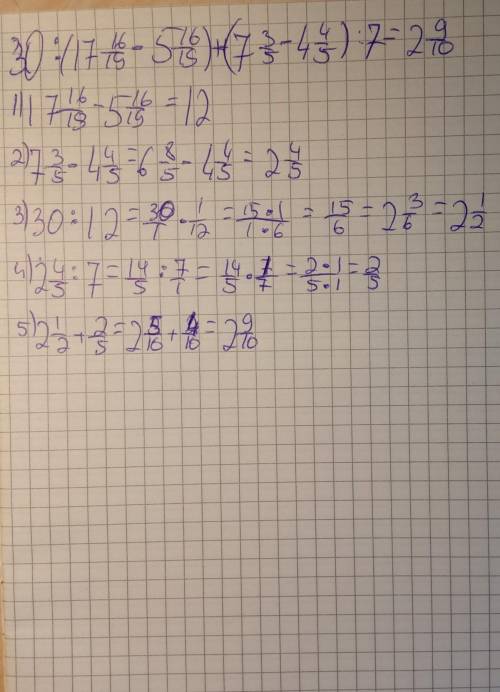 30:(17 16/19 - 5 16/19)+(7 3/5 - 4 4/5):7=2 9/10
1)17 16/19 - 5 16/19 = 12
2)7 3/5 - 4 4/5 = 6 8/5 - 4 4/5 = 2 4/5
3)30:12 = 30/1 · 1/12 = 15·1/1·6 = 15/6 = 2 3/6 = 2 1/2
4)2 4/5 : 7 = 14/5 : 7/1 = 14/5 · 1/7 = 2·1/5·1 = 2/5
5)2 1/2 + 2/5 = 2 5/10 + 4/10 = 2 9/10